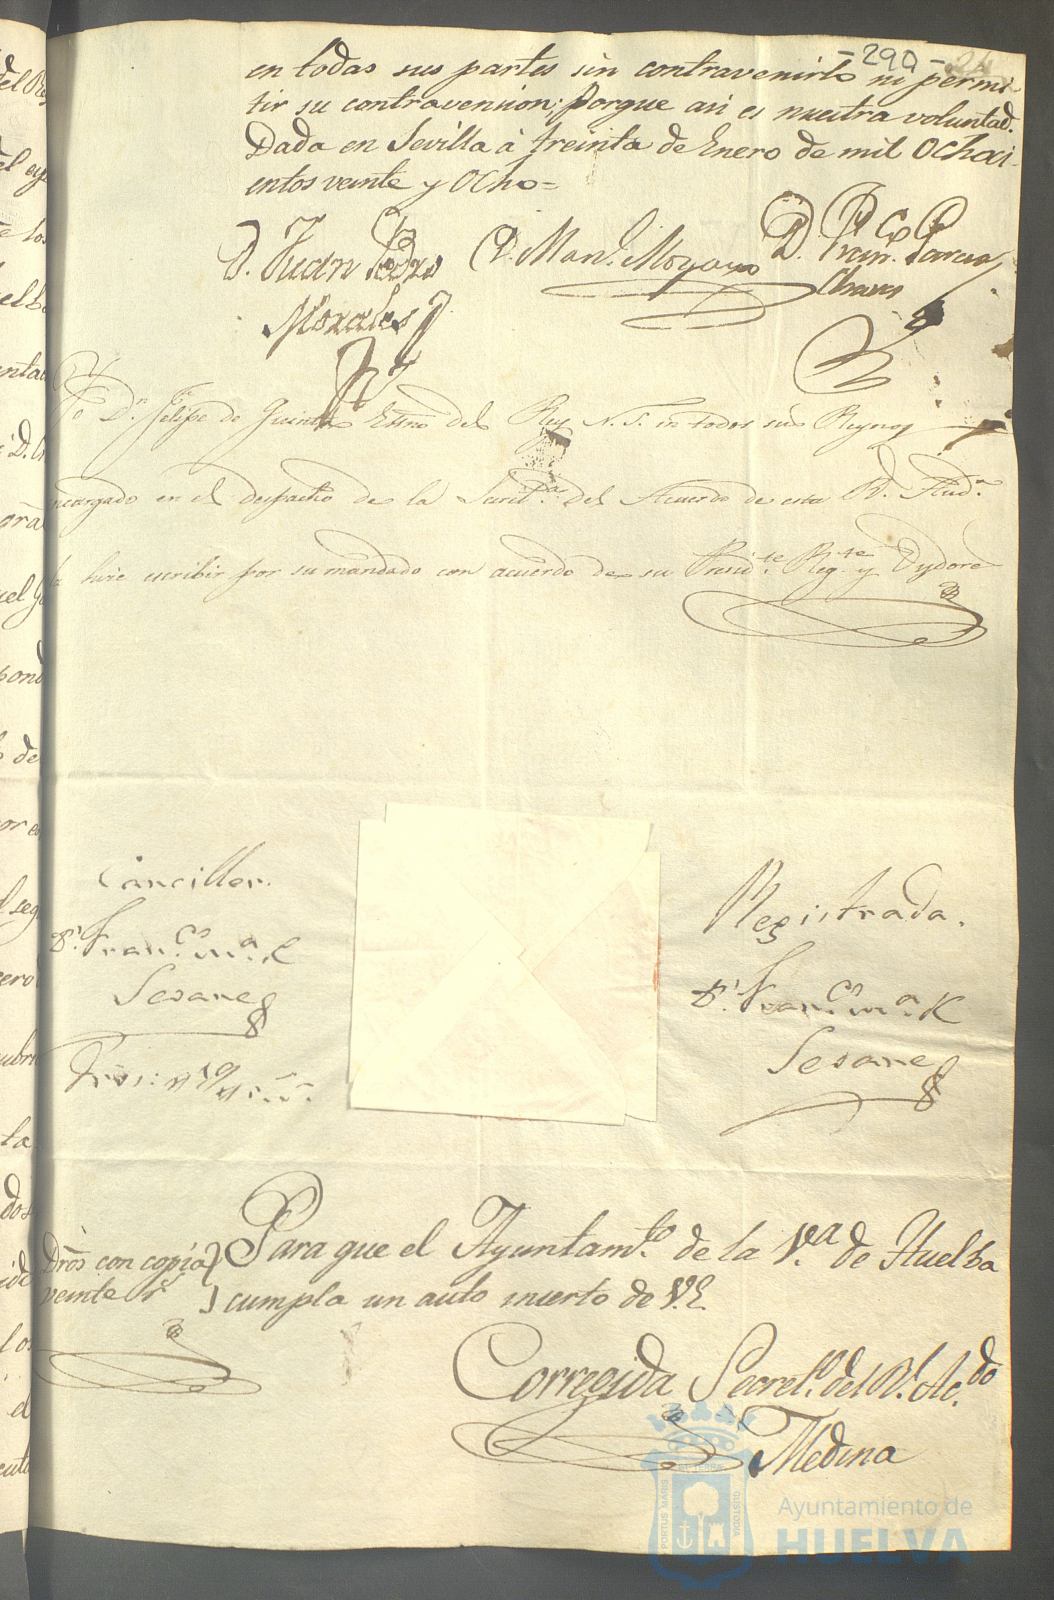 -290-
en todas sus partes sin contravenirlo ni permi-
tir su contravencion; porque asi es nuestra voluntad.
Dada en Sevilla à treinta de Enero de mil Ochoci-
entos veinte y Ocho=
D. Juan Pedro
Morales
D. Man.l Moyano
D. Fran.co Garcia
Chaves
Yo Dn. Felipe de Quinta Essno del Rey N. S. en todos sus Reynos
encargado en el despacho de la Secret.a del Acuerdo de esta R.l Aud.a
la hice escribir por su mandado con acuerdo de su Presid.te Reg.te y Oydores
Canciller.
D.n Fran.co M.a R
Sesare
Registrada.
D.n Fran.co M.a R
Sesare
Dros con copia
veinte r.s
Para que el Ayuntam.to de la V.a de Huelba
cumpla un auto inserto de V.E.
Corregida Secret.o del R.l Ac.do
Medina
PORTUS MARIS
ET TERRE
CUSTODIA
Ayuntamiento de
HUELVA